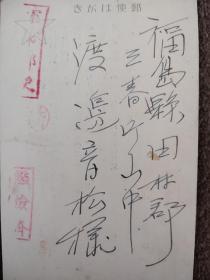 郵便はかき
福島縣田村郡
三春町山中
渡邊音松様